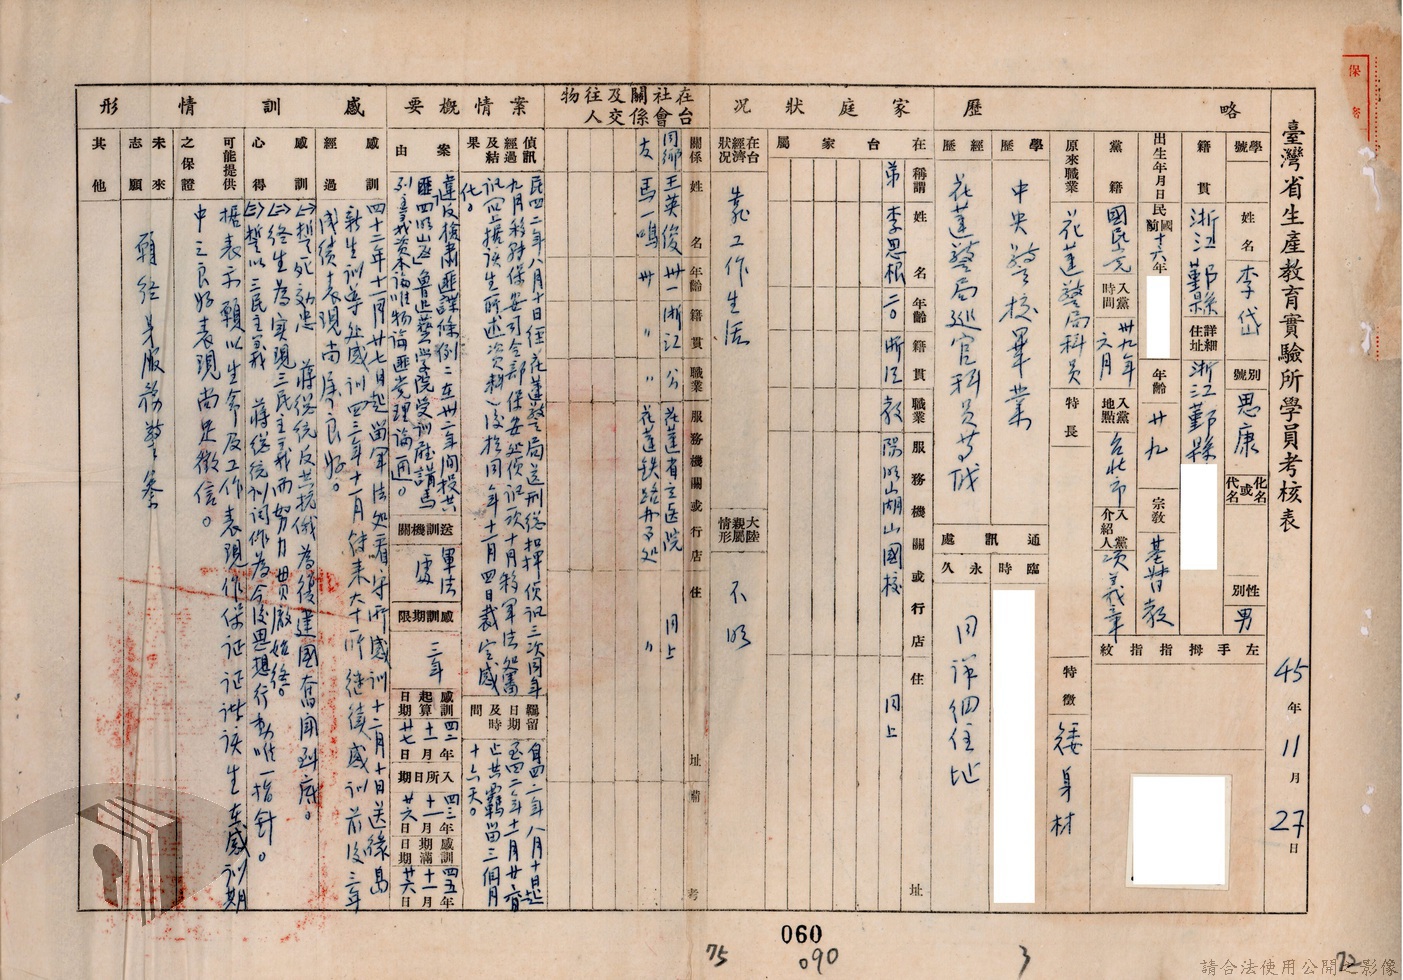 臺灣省生產教育實驗所學員考核表
45年11月27日
略歷
學號
姓名 李岱
別號 思康
化名或代名
性別 男
籍貫 浙江鄞縣
詳細住址 浙江鄞縣
出生年月日 民國前十六年
年齡 廿九
宗教 基督教
黨籍 國民黨
入黨時間 卅九年六月
入黨地點 台北市
入黨介紹人 項義章
左手拇指指紋
原來職業 花蓮警局科員
特長
特徵 矮身材
學歷 中央警校畢業
經歷 花蓮警局巡官科員等職
通訊處
臨時
永久 同詳細住址
家庭狀況
在台家屬
稱謂 姓名 年齡 籍貫 職業 服務機關或行店 住址
弟 李思根 二〇 浙江 教 陽明山湖山國校 同上
在台經濟狀況 靠工作生活
大陸親屬情形 不明
在台社會關係及交往人物
關係 姓名 年齡 籍貫 職業 服務機關或行店 住址 備考
同鄉 王英俊 卅一 浙江 公 花蓮省立医院 同上
友 馬一鳴 卅 〃 〃 花蓮鉄路办事处 〃
案情概要
偵訊經過及結果
民四二年八月十日經花蓮警局送刑總扣押偵訊三次同年
九月移解保安司令部保安处偵訊一次十月移軍法处審
訊(四)據該生所述次資料)後於同年十一月四日裁定感
化。
羈留日期及時間
自四二年八月十日起
至四二年十一月廿六日
止共羈留三個月
十六天。
案由
違反檢肅匪諜條例二在卅二年間投共
匪四明山區魯迅藝学院受訓聽講馬
列主義資本論唯物論匪党理論一週。
送訓機關 軍法處
感訓期限 三年
感訓起算日期 四二年十一月廿七日
入所日期 四三年十一月廿六日
感訓期滿日期 四五年十一月廿六日
感訓情形
感訓經過
四十二年十一月廿七日起留軍法处看守所感訓十二月十日送綠島
新生訓導处感訓四三年十一月結束大十一所繼續感訓前後三年
成績表現尚屬良好。
感訓心得
(一)誓死効忠 蔣總統反共抗俄為復建國奮鬪到底。
(二)終生為实現三民主義而努力貫徹始終。
(三)誓以三民主義 蔣總統訓词作為今後思想行動唯一指針。
可能提供之保證
據表示願以生命及工作表現作保証証諸該生在感訓期
中之良好表現尚足徵信。
未來志願 願终身服務警务
其他
060
75
090
3
72
保
請合法使用公開之影像